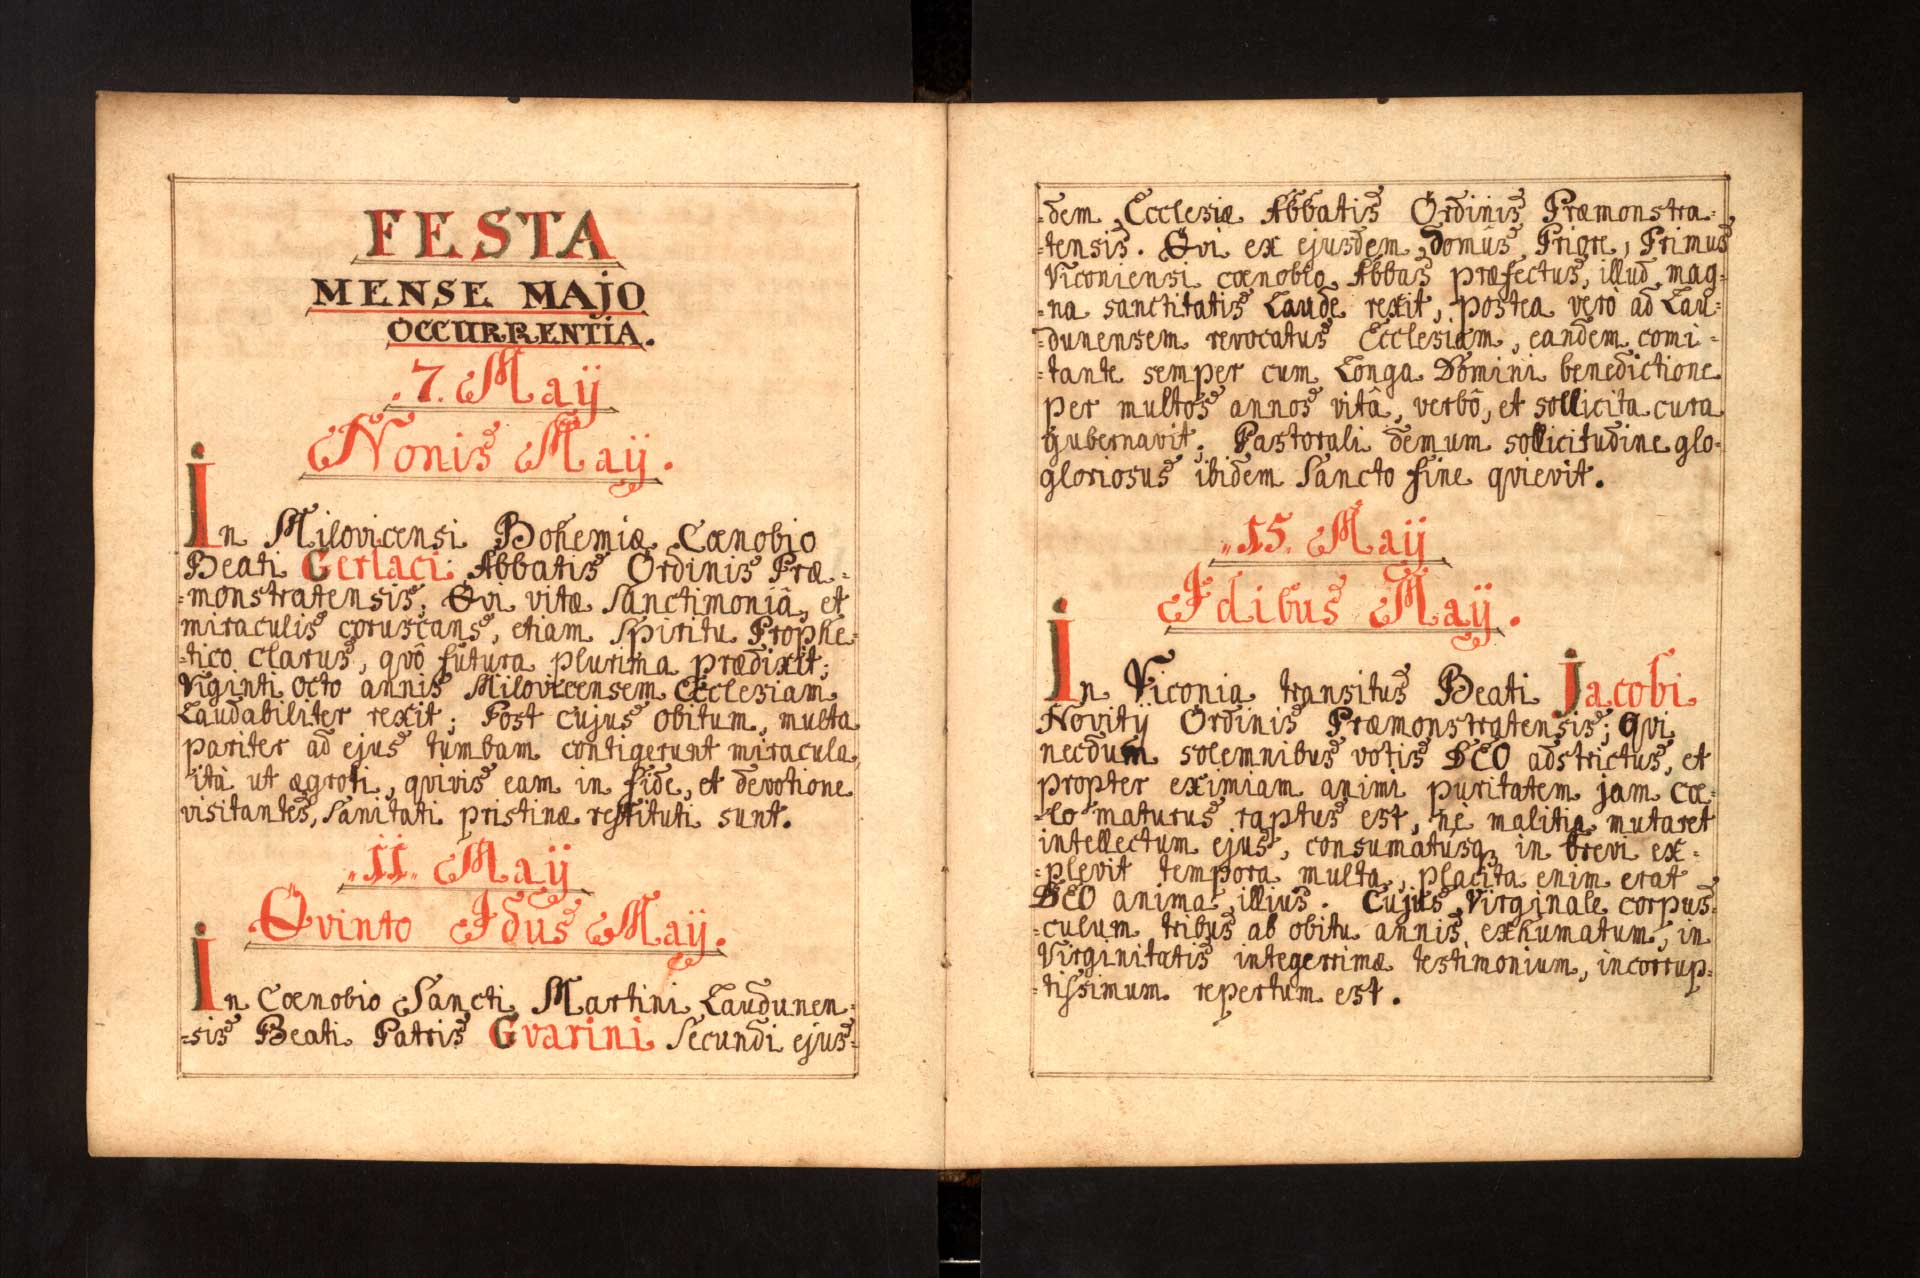 FESTA
MENSE MAJO
OCCURRENTIA.
.7. Maÿ
Nonis Maÿ.
In Milovicensi Bohemiæ Cœnobio
Beati Gerlaci Abbatis Ordinis Præ-
-monstratensis, Qvi vitæ Sanctimoniâ, et
miraculis coruscans, etiam Spiritu Prophe-
-tico clarus, qvô futura plurima prædixit;
Viginti octo annis Milovicensem Ecclesiam
Laudabiliter rexit; Post cujus obitum, multa
pariter ad ejus tumbam contigerunt miracula,
ità ut ægroti, qvivis eam in fide, et devotione
visitantes, Sanitati pristinæ restituti sunt.
„11„ Maÿ
Qvinto Idus Maÿ.
In Cœnobio Sancti Martini Laudunen-
-sis Beati Patris Gvarini Secundi ejus-
-dem Ecclesiæ Abbatis Ordinis Præmonstra-
-tensis. Qvi ex ejusdem domûs Priore, Primus
Viconiensi cœnobio Abbas præfectus, illud mag-
-na sanctitatis Laude rexit, postea verò ad Lau-
-dunensem revocatus Ecclesiam, eandem comi-
-tante semper cum Longa Domini benedictione
per multos annos vitâ, verbô, et sollicita cura
gubernavit; Pastorali demum sollicitudine glo-
gloriosus ibidem Sancto fine qvievit.
„15. Maÿ
Idibus Maÿ.
In Viconia transitus Beati Jacobi
Novitÿ Ordinis Præmonstratensis; qvi
necdum solemnibus votis DEO adstrictus, et
propter eximiam animi puritatem jam cœ-
-lo maturus raptus est, nè malitia mutaret
intellectum ejus, consumatusq; in brevi ex-
-plevit tempora multa, placita enim erat
DEO anima illius. Cujus Virginale corpus-
-culum tribus ab obitu annis exhumatum, in
Virginitatis integerrimæ testimonium, incorrup-
-tissimum repertum est.